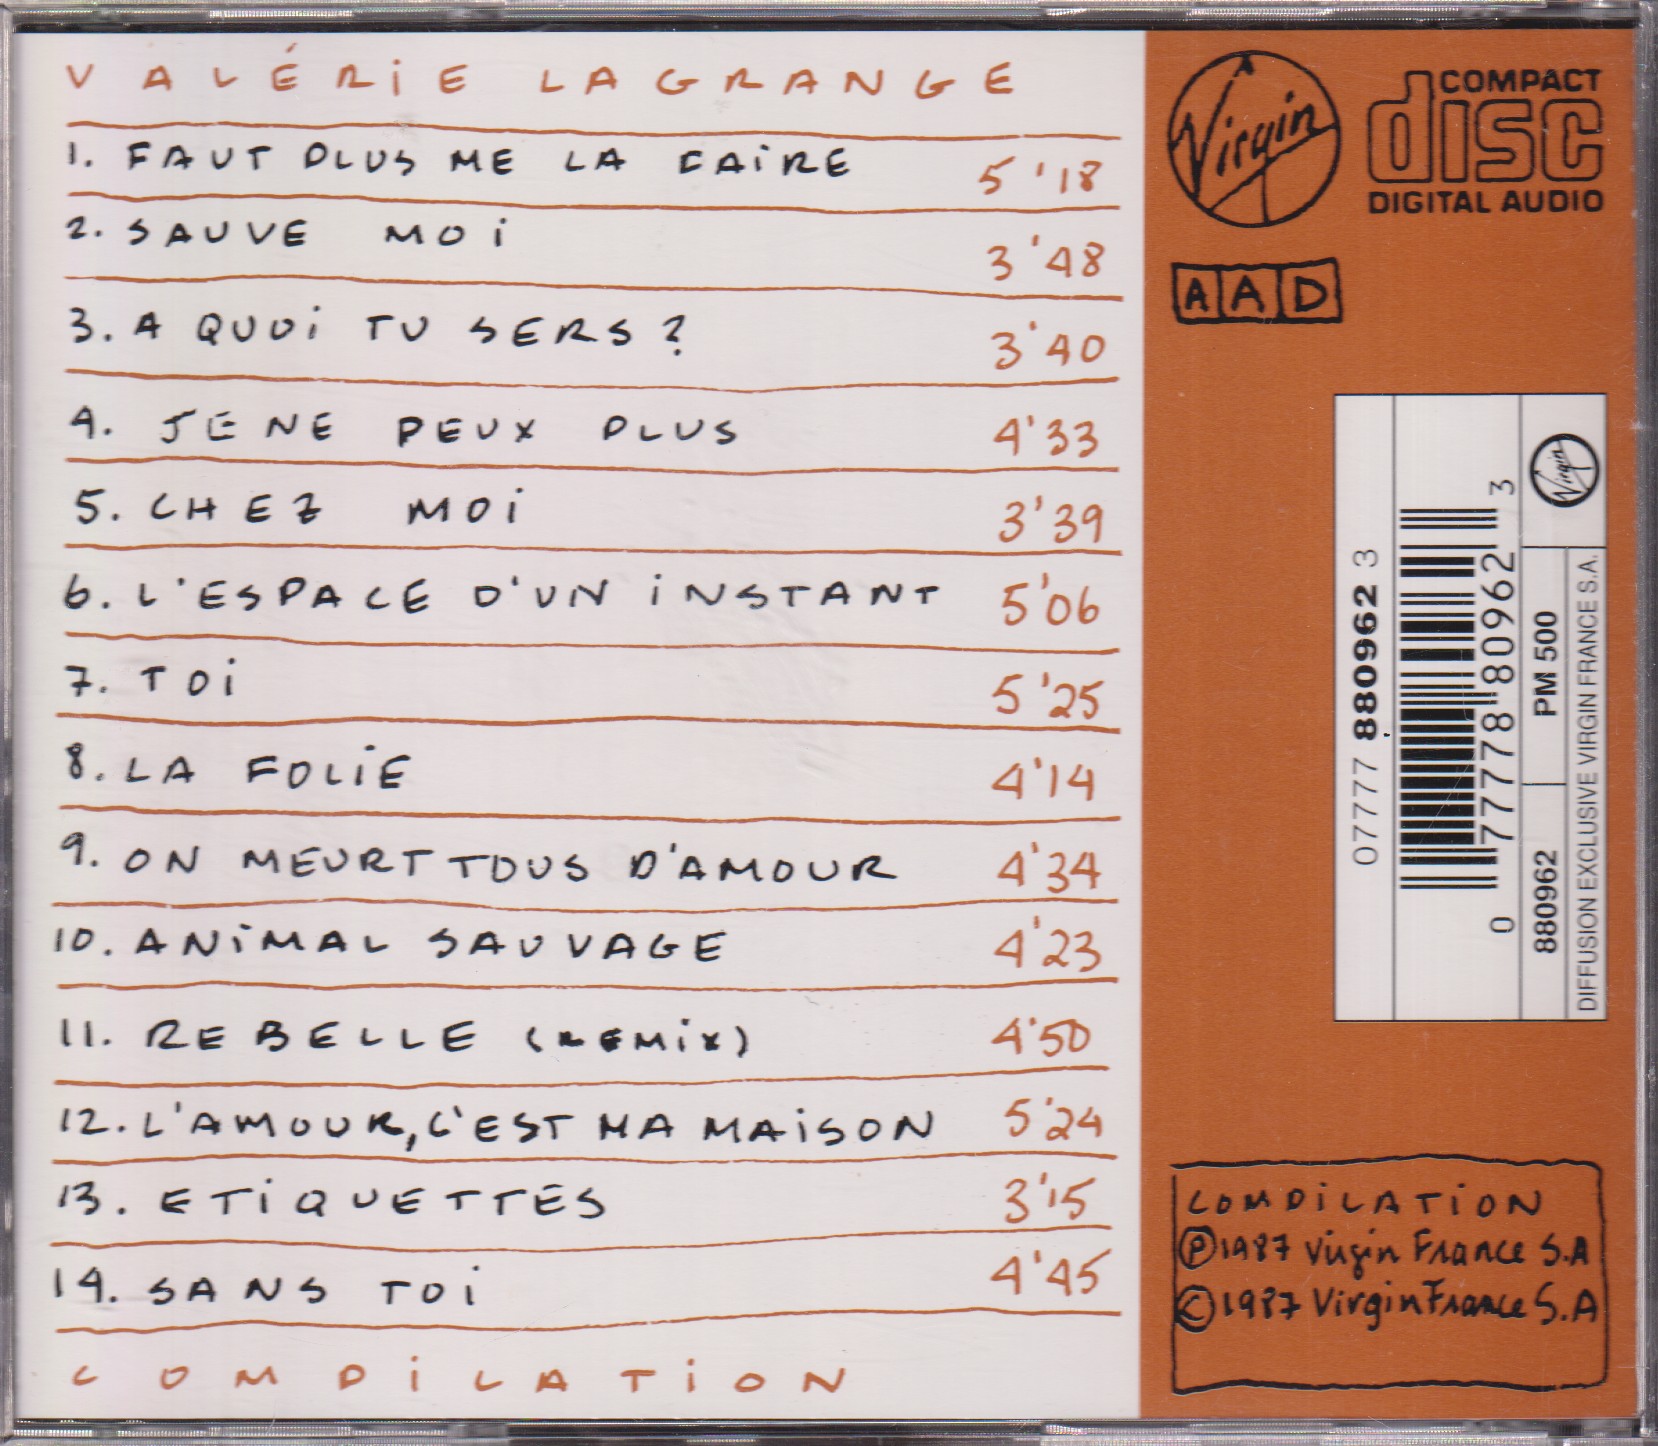 VALÉRIE LAGRANGE
1. FAUT PLUS ME LA FAIRE 5'18
2. SAUVE MOI 3'48
3. A QUOI TU SERS ? 3'40
4. JE NE PEUX PLUS 4'33
5. CHEZ MOI 3'39
6. L'ESPACE D'UN INSTANT 5'06
7. TOI 5'25
8. LA FOLIE 4'14
9. ON MEURT TOUS D'AMOUR 4'34
10. ANIMAL SAUVAGE 4'23
11. REBELLE (REMIX) 4'50
12. L'AMOUR, C'EST MA MAISON 5'24
13. ETIQUETTES 3'15
14. SANS TOI 4'45
COMPILATION
Virgin
COMPACT
disc
DIGITAL AUDIO
AAD
07777 880962 3
0 77778 80962 3
Virgin
PM 500
880962
DIFFUSION EXCLUSIVE VIRGIN FRANCE S.A.
COMPILATION
Ⓟ 1987 Virgin France S.A
© 1987 Virgin France S.A